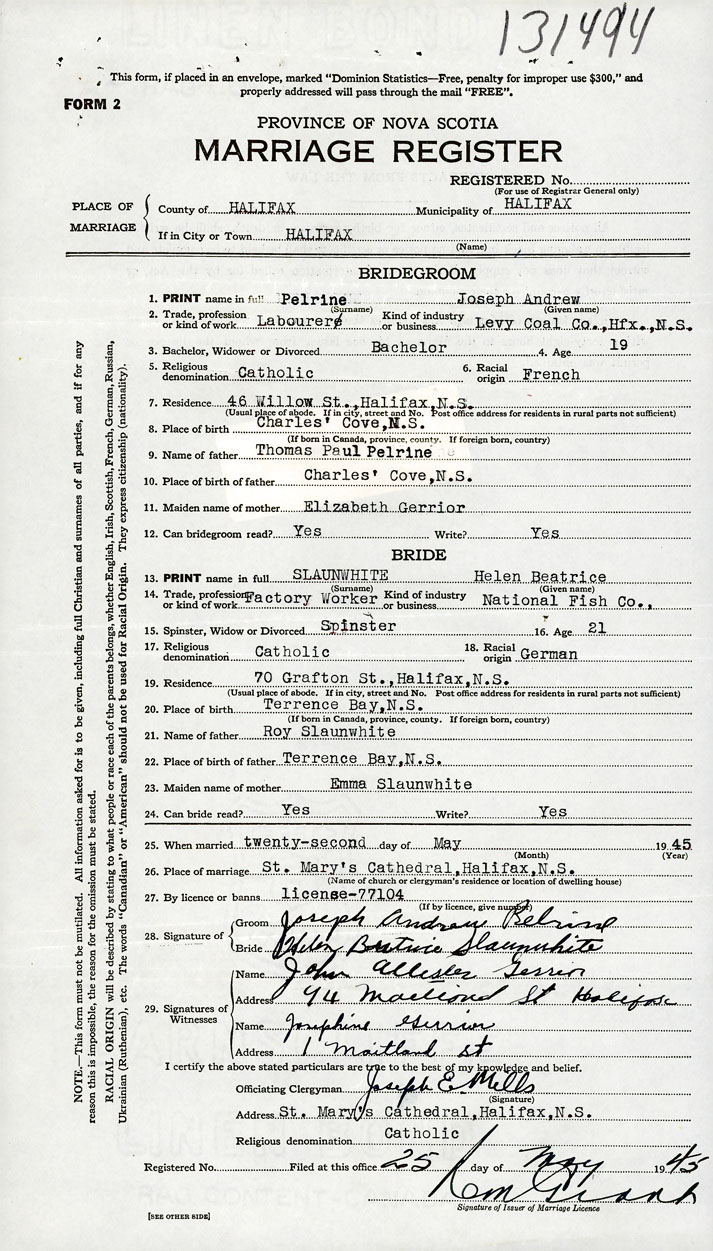 131494
This form, if placed in an envelope, marked "Dominion Statistics—Free, penalty for improper use $300," and
properly addressed will pass through the mail "FREE".
FORM 2
PROVINCE OF NOVA SCOTIA
MARRIAGE REGISTER
REGISTERED No.
(For use of Registrar General only)
PLACE OF MARRIAGE
County of HALIFAX Municipality of HALIFAX
If in City or Town HALIFAX
(Name)
BRIDEGROOM
1. PRINT name in full Pelrine Joseph Andrew
(Surname) (Given name)
2. Trade, profession or kind of work Labourer Kind of industry or business Levy Coal Co.,Hfx.,N.S.
3. Bachelor, Widower or Divorced Bachelor 4. Age 19
5. Religious denomination Catholic 6. Racial origin French
7. Residence 46 Willow St.,Halifax,N.S.
(Usual place of abode. If in city, street and No. Post office address for residents in rural parts not sufficient)
8. Place of birth Charles' Cove,N.S.
(If born in Canada, province, county. If foreign born, country)
9. Name of father Thomas Paul Pelrine
10. Place of birth of father Charles' Cove,N.S.
11. Maiden name of mother Elizabeth Gerrior
12. Can bridegroom read? Yes Write? Yes
BRIDE
13. PRINT name in full SLAUNWHITE Helen Beatrice
(Surname) (Given name)
14. Trade, profession or kind of work Factory Worker Kind of industry or business National Fish Co.,
15. Spinster, Widow or Divorced Spinster 16. Age 21
17. Religious denomination Catholic 18. Racial origin German
19. Residence 70 Grafton St.,Halifax,N.S.
(Usual place of abode. If in city, street and No. Post office address for residents in rural parts not sufficient)
20. Place of birth Terrence Bay,N.S.
(If born in Canada, province, county. If foreign born, country)
21. Name of father Roy Slaunwhite
22. Place of birth of father Terrence Bay,N.S.
23. Maiden name of mother Emma Slaunwhite
24. Can bride read? Yes Write? Yes
25. When married twenty-second day of May 1945
(Month) (Year)
26. Place of marriage St. Mary's Cathedral,Halifax,N.S.
(Name of church or clergyman's residence or location of dwelling house)
27. By licence or banns license-77104
(If by licence, give number)
28. Signature of
Groom Joseph Andrew Pelrine
Bride Helen Beatrice Slaunwhite
29. Signatures of Witnesses
Name John Allister Gerrior
Address 94 Maitland St Halifax
Name Josephine Gerrior
Address 1 Maitland St
I certify the above stated particulars are true to the best of my knowledge and belief.
Officiating Clergyman Joseph E. Mills
(Signature)
Address St. Mary's Cathedral,Halifax,N.S.
Religious denomination Catholic
Registered No. Filed at this office 25 day of May 1945
Signature of Issuer of Marriage Licence
[SEE OTHER SIDE]
NOTE.—This form must not be mutilated. All information asked for is to be given, including full Christian and surnames of all parties, and if for any
reason this is impossible, the reason for the omission must be stated.
RACIAL ORIGIN will be described by stating to what people or race each of the parents belongs, whether English, Irish, Scottish, French, German, Russian,
Ukrainian (Ruthenian), etc. The words "Canadian" or "American" should not be used for Racial Origin. They express citizenship (nationality).